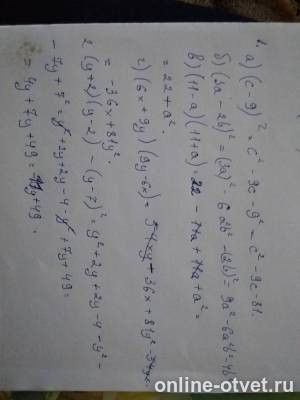 1.
а) (c-9)² = c² - 9c - 9² = c² - 9c - 81.
б) (3a - 2b)² = (3a)² 6 2b² - (2b)² = 9a² - 6a²b - 4b
в) (11-a)(11+a) = 22 - 11a + 11a + a² =
= 22 + a².
г) (6x + 9y)(9y - 6x) = 54xy - 36x + 81y² - 54yx
= -36x + 81y².
2. (y+2)(y-2) - (y-7)² = y² + 2y + 2y - 4 - y² -
- 7y + 7² = y² + 2y + 2y - 4 - y² + 7y + 49 =
= 4y + 7y + 49 = 11y + 49.
online-otvet.ru